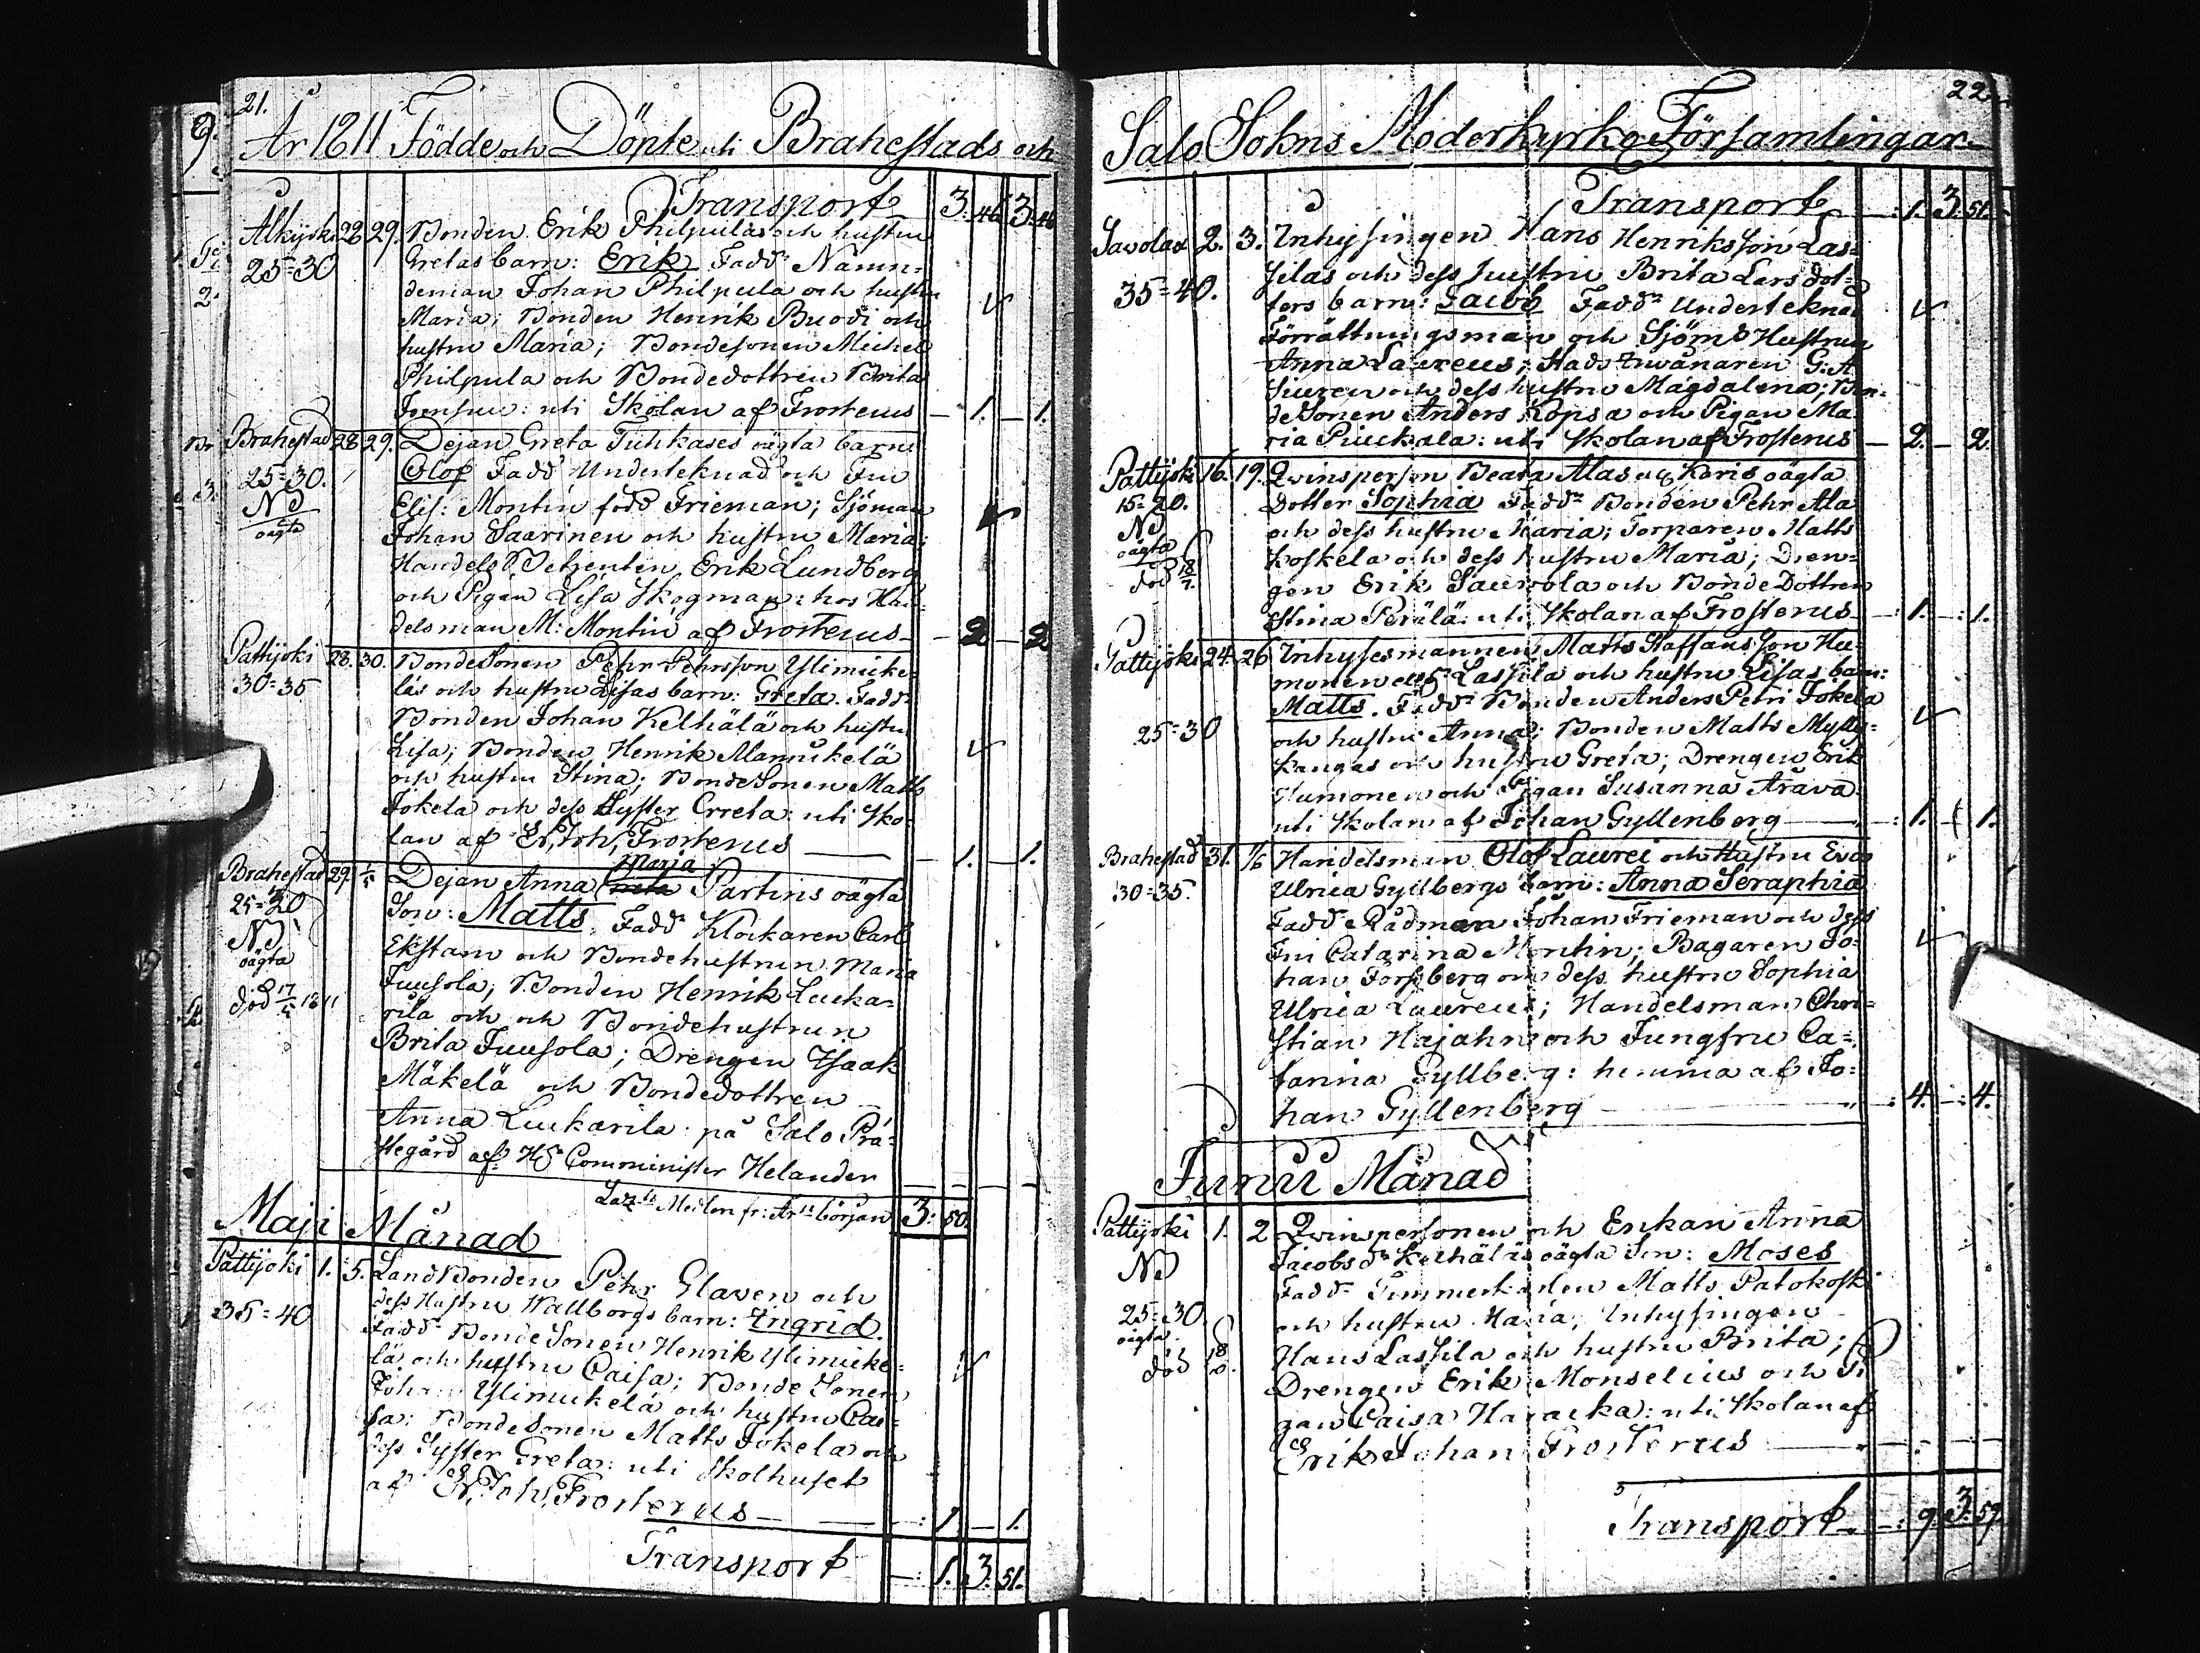 21.
År 1811 Födde och Döpte uti Brahestads och
Transport 3. 46 3. 46
Alkijoki 28 29. Bonden Erik Philpulas och hustru
25=30 Gretas barn: Erik Fadd: Nämn=
deman Johan Philpula och hustru
Maria; Bonden Henrik Buodi och
hustru Maria; Bondesonen Michel
Philpula och Bondedottren Brita
uti Skolan af Frosterus — 1. — 1.
Brahestad 28 29. Dejan Greta Tuhkases oägta barn
25=30. Olof Fadd Underteknad och Fru
ND Elis: Montin född Frieman; Sjöman
oägta Johan Saarinen och hustru Maria;
Handels Betjenten Erik Lundberg
och Pigan Lisa Skogman: hos Han=
delsman M: Montin af Frosterus — 2 — 2
Pattijoki 28. 30. BondeSonen Pehr Pehrsson Ylimicke=
30=35 läs och hustru Lisas barn: Greta. Fadd:
Bonden Johan Kelhälä och hustru
Lisa; Bonden Henrik Mannikelä
och hustru Stina; BondeSonen Matts
Jokela och dess Syster Greta: uti Sko=
lan af E, Joh, Frosterus — 1. — 1.
Maja
Brahestad 29. 1/5 Dejan Anna Partins oägta
25=30 Son: Matts. Fadd Klockaren Carl
ND Ekstam och Bondehustrun Maria
oägta Juusola; Bonden Henrik Lucka=
död 17/5 1811 rila och och Bondehustrun
Brita Juusola; Drengen Isaak
Mäkelä och Bondedottren
Anna Luckarila på Salo Prä=
stegård af Hr Comminister Helander
fr: Års början 3: 50.
Maji Månad
Pattijoki 1. 5. LandBonden Pehr Elaven och
35=40 dess Hustru Wallborgs barn: Ingrid.
Fadd: BondeSonen Henrik Ylimicke=
lä och hustru Caisa; BondeSonen
Johan Ylimickelä och hustru Cai=
sa; BondeSonen Matts Jokela och
dess Syster Greta: uti Skolhuset
af E, Joh, Frosterus — 1. — 1.
Transport — 1. 3. 51.
22.
Salo Sokns Moderkyrko Församlingar
Transport — 1. 3. 51.
Savolax 2. 3. Inhysingen Hans Henriksson Las=
35=40. silas och dess hustru Brita Larsdot=
ters barn: Jacob Fadd: Underteknad
Förrättningsman och Sjömd Hustrun
Anna Laureus; Stads Inwånaren G: A
och dess hustru Magdalena; Bon=
deSonen Anders Kopsa och Pigan Ma=
ria Piuckala: uti Skolan af Frosterus — 2. — 2.
Pattijoki 16. 19. Qvinsperson Beata Alas oägta
15=20. Dotter Sophia Fadd: Bonden Pehr Ala
ND och dess hustru Maria; Torparen Matts
oägta Koskela och dess hustru Maria; Dren=
död 18/7. gen Erik Saukola och BondeDottren
Stina Perälä: uti Skolan af Frosterus — 1. — 1.
Pattijoki 24. 26 Inhysesmannen Matts Staffansson Hu=
monen Lassila och hustru Lisas barn:
Matts. Fadd: Bonden Anders Petri Jokela
25=30 och hustru Anna; Bonden Matts Mylly=
kangas och hustru Greta; Drengen Erik
Humonen och Pigan Susanna Arava
uti Skolan af Johan Gyllenberg — 1. — 1.
Brahestad 31. 1/6 Handelsman Olof Laurei och Hustru Evas
30=35. Ulrica Gyllbergs barn: Anna Seraphia
Fadd: Rådman Johan Frieman och dess
Fru Catarina Montin; Bagaren Jo=
han Forssberg och dess hustru Sophia
Ulrica Laureus; Handelsman Chri=
stian Hajahn och Jungfru Ca=
tarina Gyllberg: hemma af Jo=
han Gyllenberg — 4. — 4.
Junii Månad
Pattijoki 1. 2 Qvinspersonen och Enkan Anna
ND Jacobsdr Kelhäläs oägta Son: Moses
25=30. Fadd: Timmerkarlen Matts Patokoski
oägta och hustru Maria; Inhysingen
död Hans Lassila och hustru Brita;
Drengen Erik Monselius och Pi
gan Caisa Haracka: uti Skolan af
Erik Johan Frosterus
Transport — 9. 3. 59.